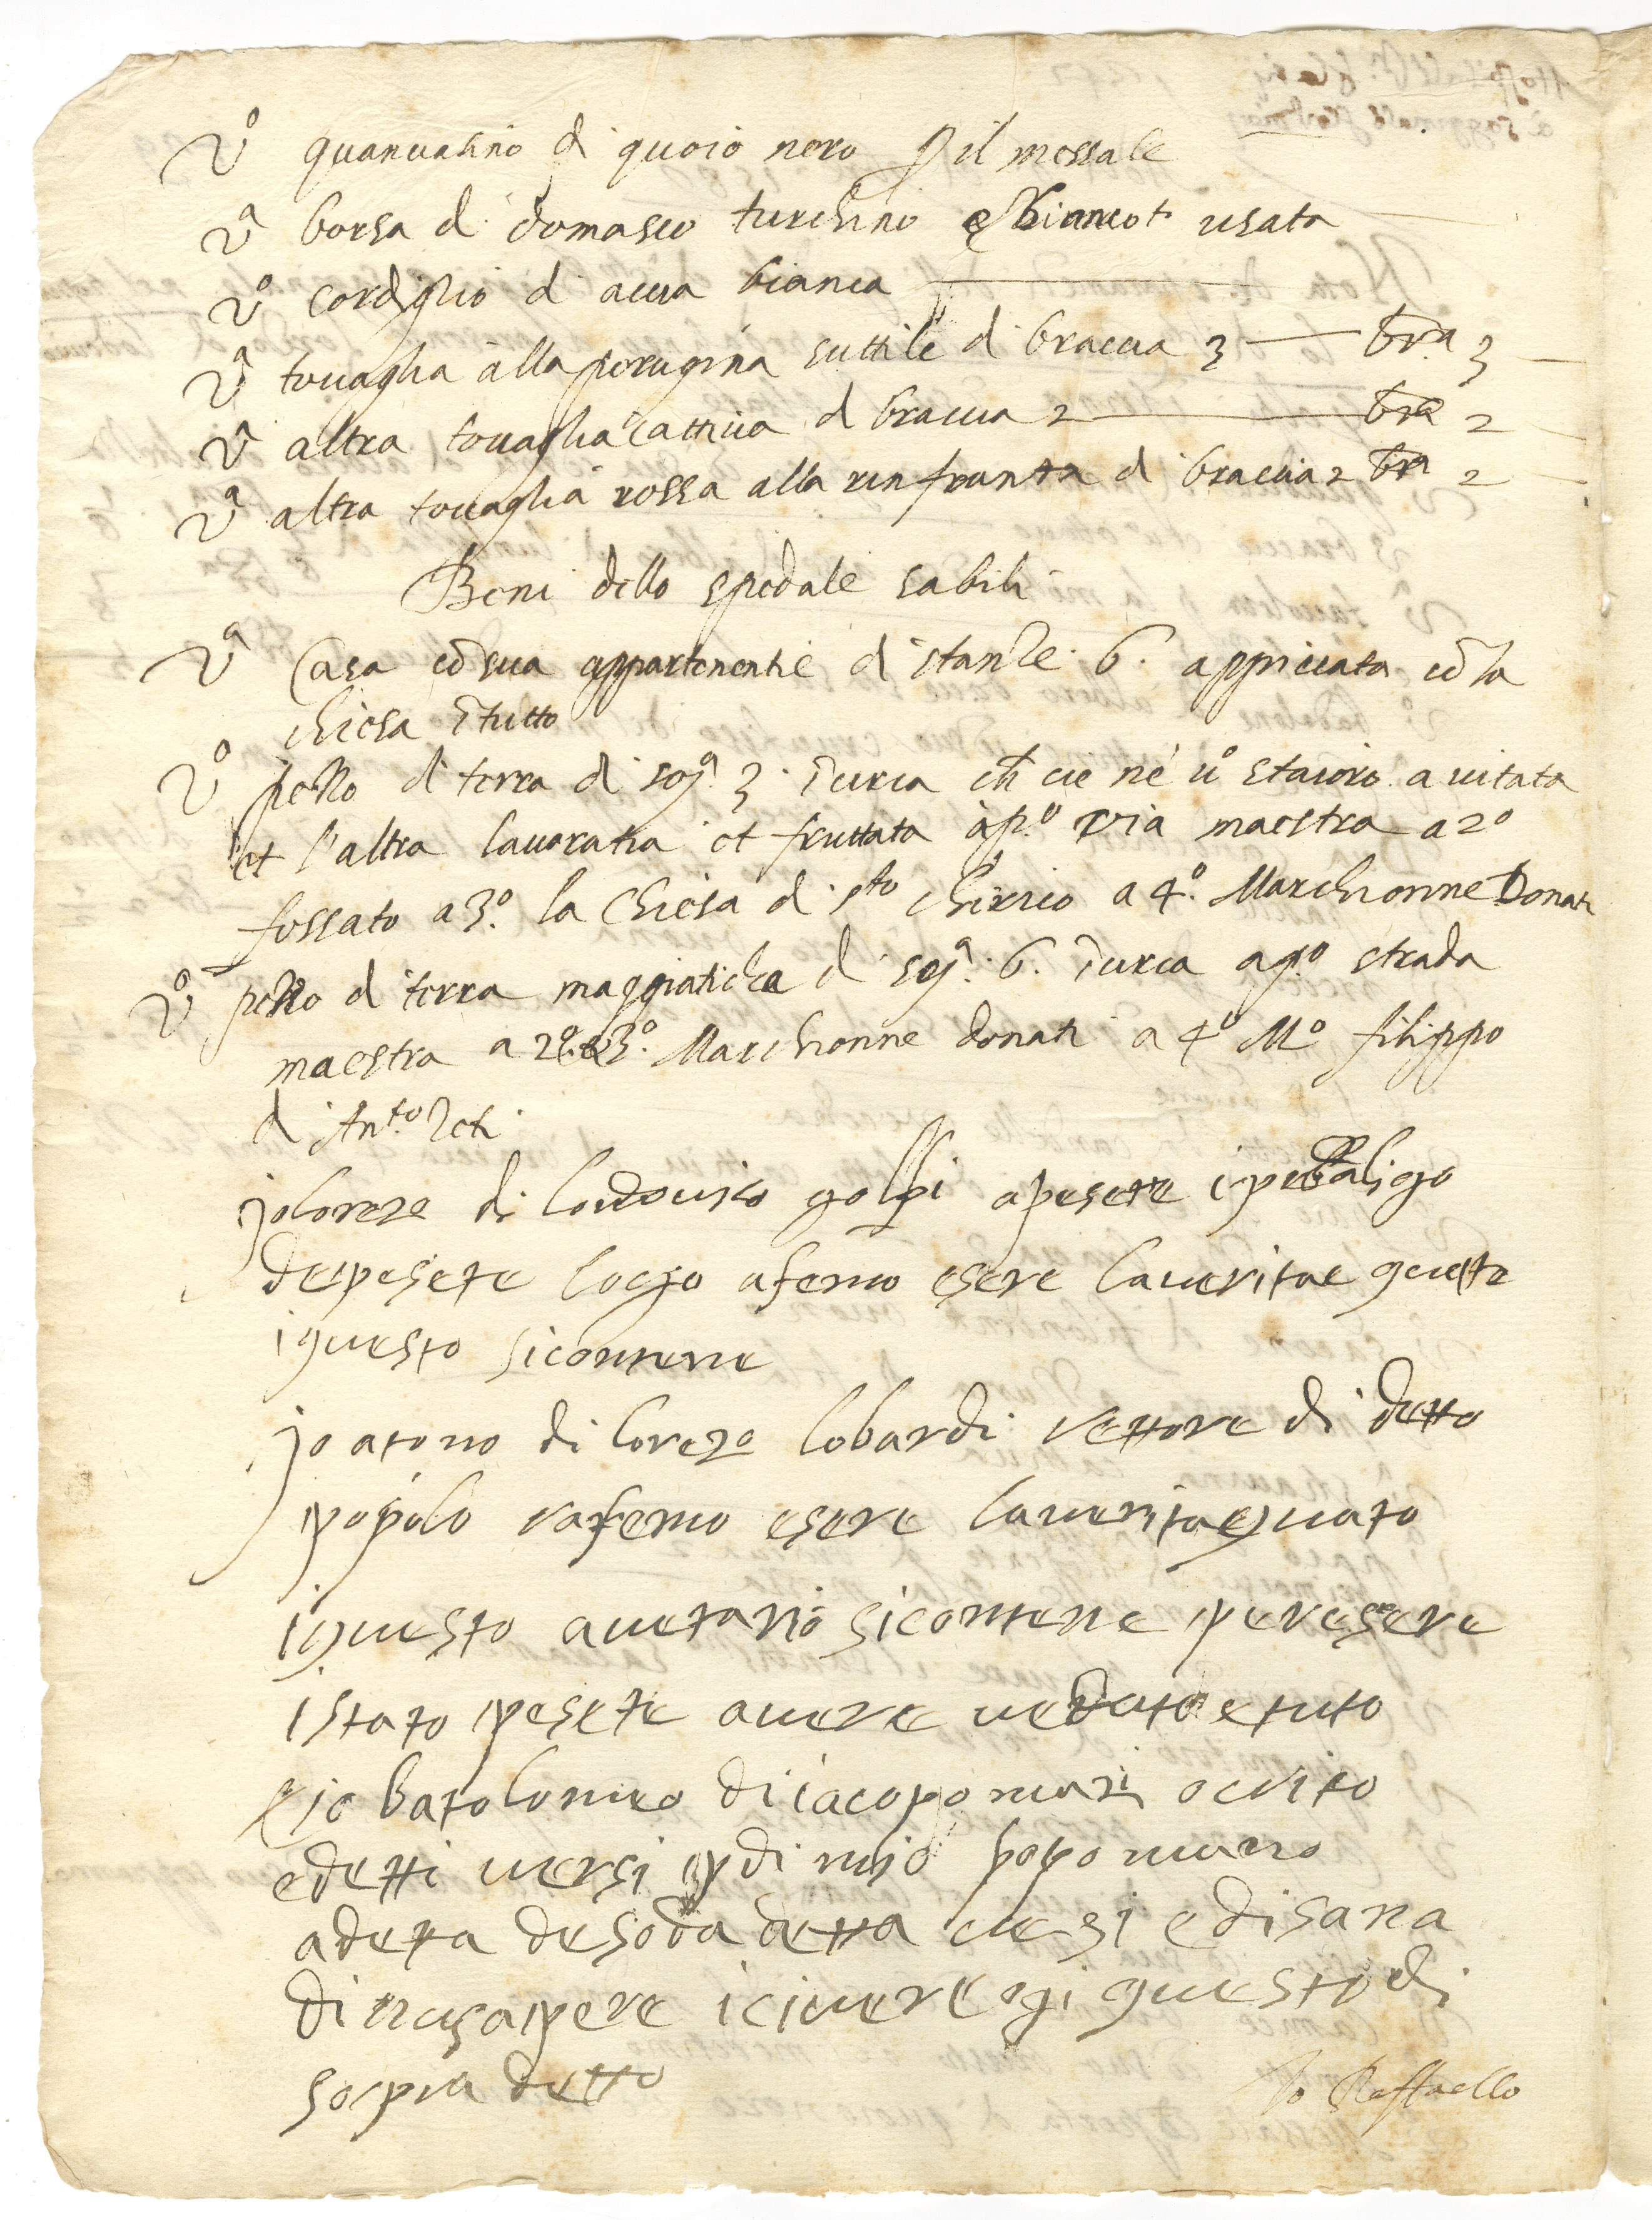 vº guancialino di quoio nero p il messale
vª borsa di domasco turchino e biancot. usata
vº cordiglio di accia bianca
vª tovaglia alla perugina suttile di braccia 3 — br.a 3
vª altra tovaglia cattiva di braccia 2 — bra 2
vª altra tovaglia rossa alla rinfranta di braccia 2 bra 2
Beni dello spedale stabili
vª Casa cō sua appartenentie di stanze 6. appiccata cō la
chiesa ī tutto
vº pezzo di terra di soj.ª 3. ī circa ch ce ne uº staioro avitata
et l'altra lavoratia et fruttata a p.º via maestra a 2º
fossato a 3.º la Chiesa di s.to Chirico a 4.º Marchionne Donati
vº pezzo di terra maggiaticha di soj.ª 6. ī circa a p.º strada
maestra a 2º. e 3.º Marchionne donati a 4º Mº filippo
di Ant.º
jo loreze di lodovico golpi apesete
depesete locgo afermo esere la verita
iquesto si contene
jo atono di lorezo lobardi rettore di detto
popolo rafermo esere la verita quato
iquesto avetario si contene per esere
istato pesete avere veduto e tuto
e io batolomeo di iacopo ocrito
e detti versi p di mio
adeta detta e disana
di no sapere icivere ogi questo di
sopra detto
Io Raffaello